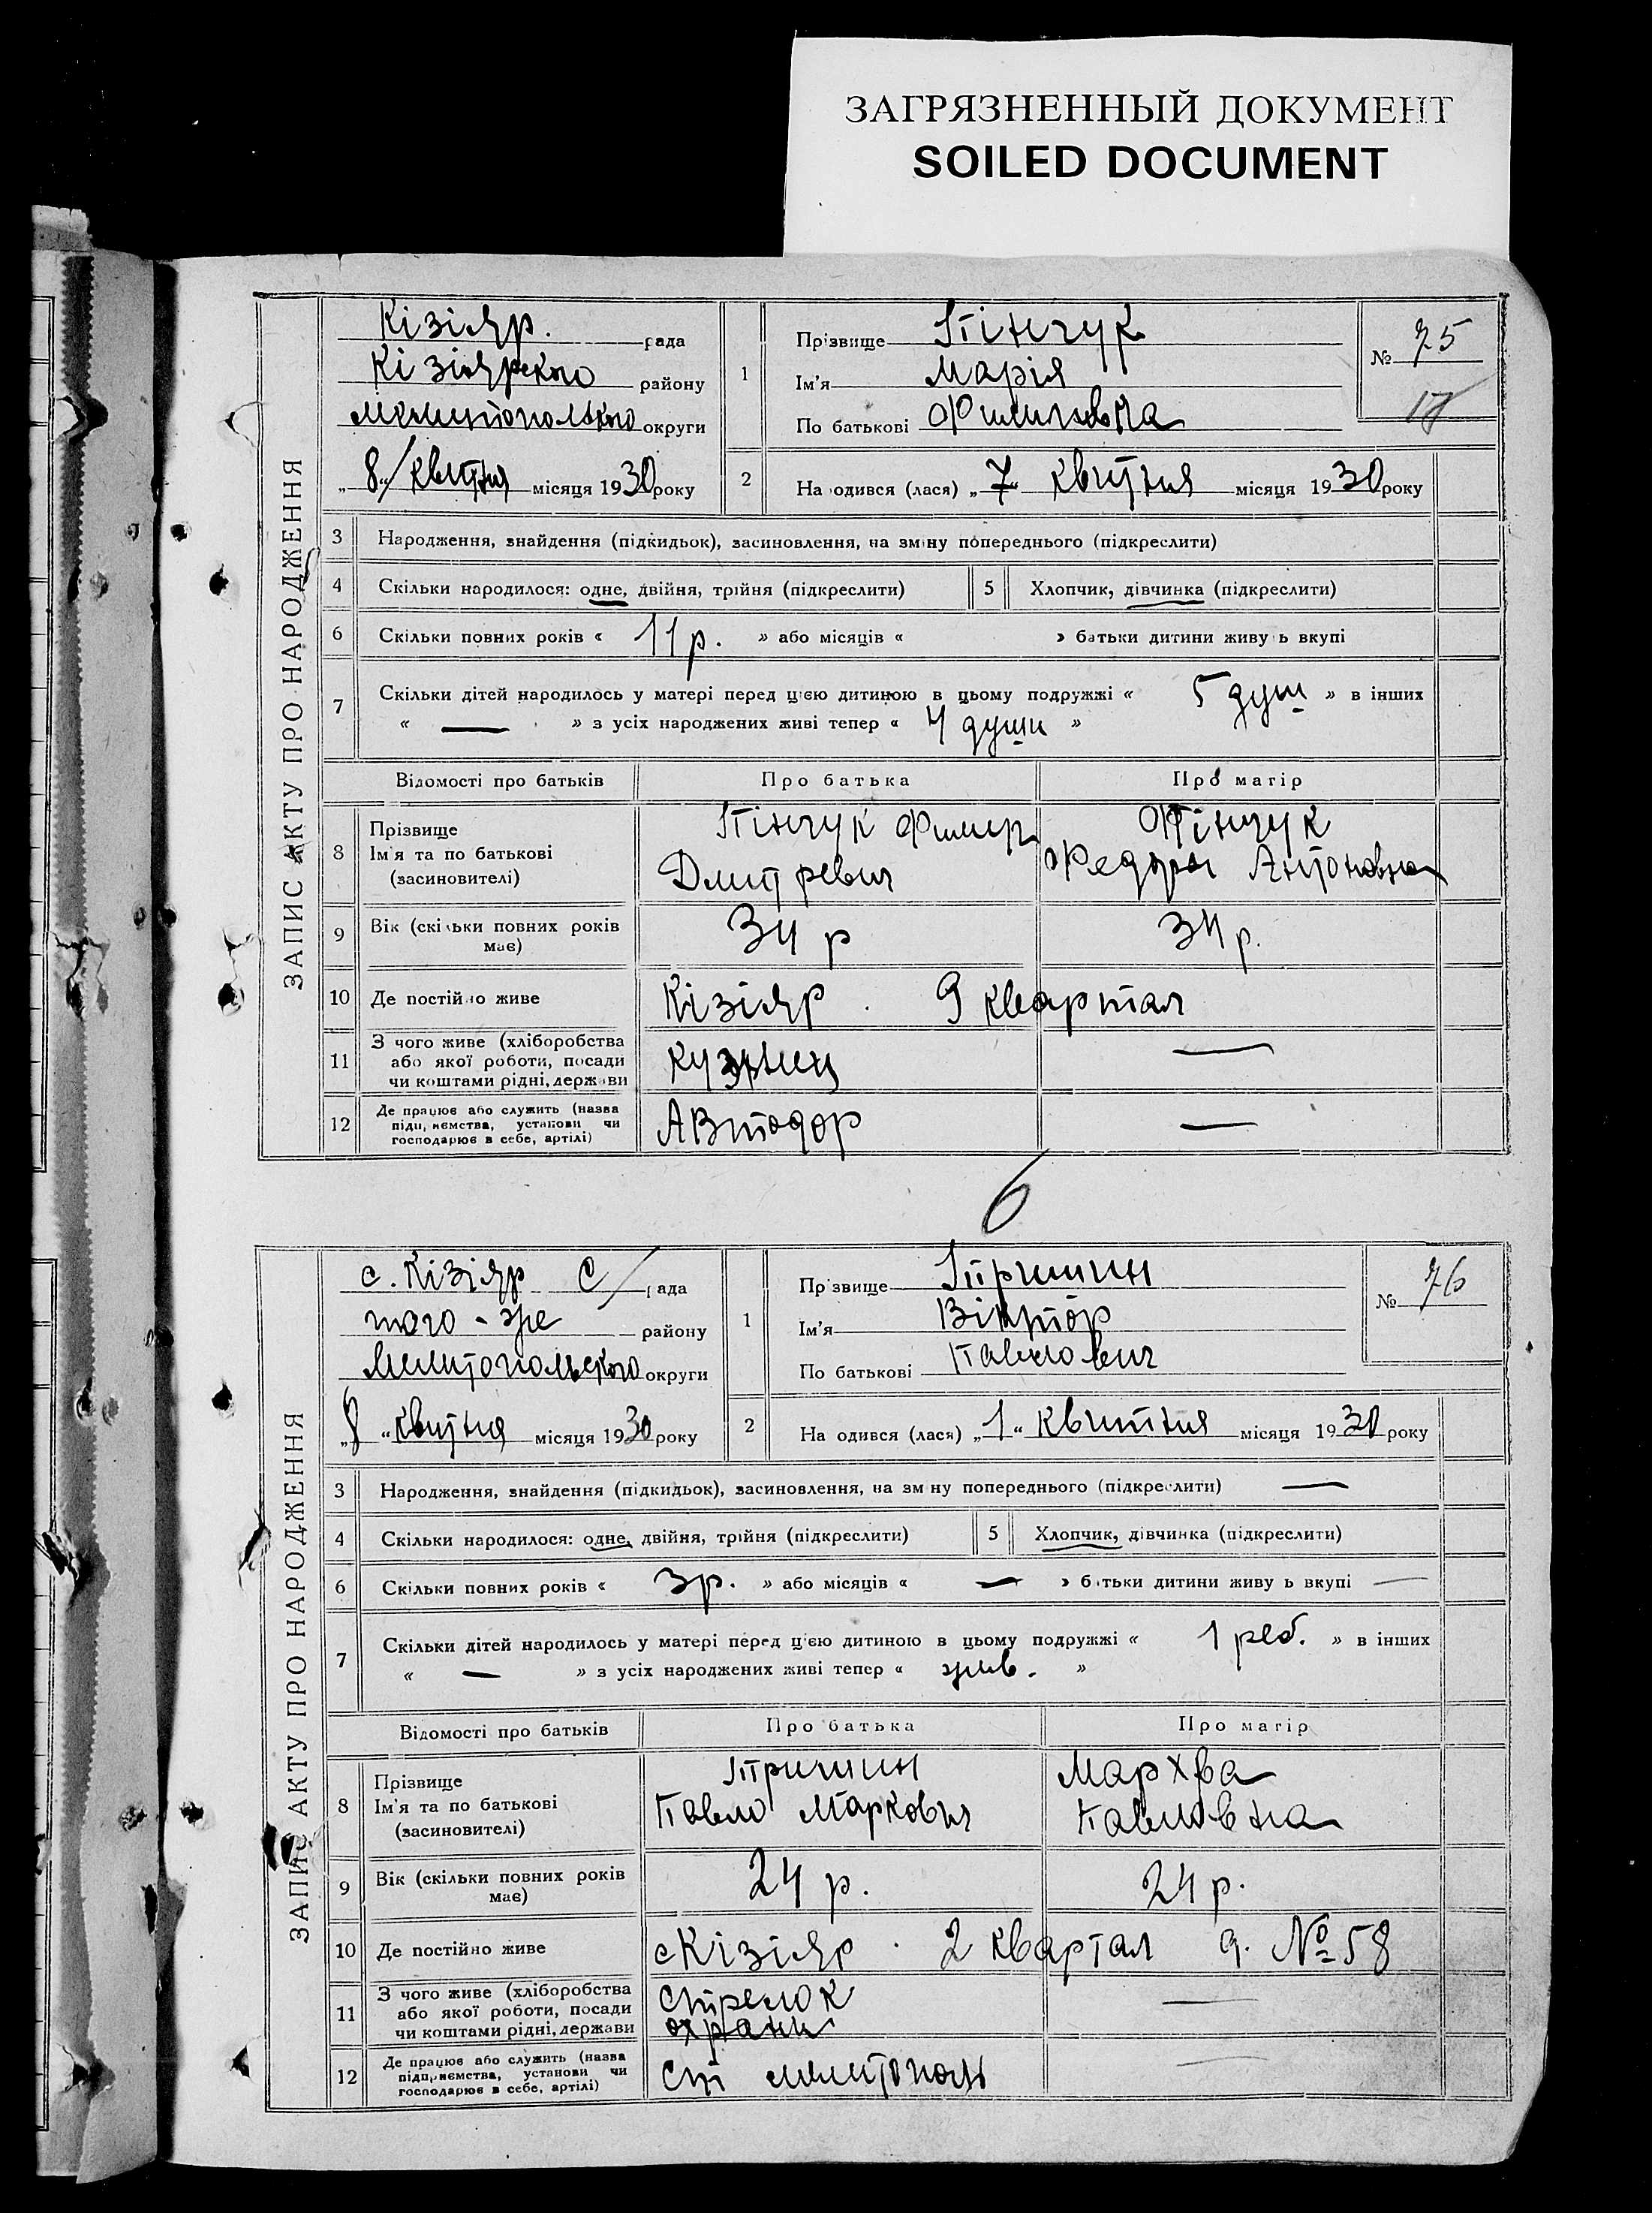 ЗАГРЯЗНЕННЫЙ ДОКУМЕНТ
SOILED DOCUMENT
ЗАПИС АКТУ ПРО НАРОДЖЕННЯ
Кізіяр. рада
Кізіярского району
Мелитопольского округи
„8“ квітня місяця 1930 року
1
Прізвище Пінчук
Ім'я Марія
По батькові
№ 75
17
2
На одився (лася) „7“ квітня місяця 1930 року
3 Народження, знайдення (підкидьок), засиновлення, на зміну попереднього (підкреслити)
4 Скільки народилося: одне, двійня, трійня (підкреслити)
5 Хлопчик, дівчинка (підкреслити)
6 Скільки повних років « 11 р. » або місяців « » батьки дитини живу ь вкупі
7 Скільки дітей народилось у матері перед цією дитиною в цьому подружжі « 5 душ » в інших
« — » з усіх народжених живі тепер « 4 души »
Відомості про батьків Про батька Про матір
8 Прізвище
Ім'я та по батькові
(засиновителі)
Пінчук
Дмитревич
Пінчук
Федора Антоновна
9 Вік (скільки повних років
має)
34 р
34 р.
10 Де постійно живе Кізіяр. 9 квартал
11 З чого живе (хліборобства
або якої роботи, посади
чи коштами рідні, держави
кузнец —
12 Де працює або служить (назва
підприємства, установи чи
господарює в себе, артілі)
Автодор —
6
ЗАПИС АКТУ ПРО НАРОДЖЕННЯ
с. Кізіяр С/ рада
того-же району
Мелитопольского округи
„8“ квітня місяця 1930 року
1
Прізвище Пришин
Ім'я Віктор
По батькові Павлович
№ 76
2
На одився (лася) „1“ квитня місяця 1930 року
3 Народження, знайдення (підкидьок), засиновлення, на зм ну попереднього (підкреслити) —
4 Скільки народилося: одне, двійня, трійня (підкреслити)
5 Хлопчик, дівчинка (підкреслити)
6 Скільки повних років « 3 р. » або місяців « — » батьки дитини живу ь вкупі —
7 Скільки дітей народилось у матері перед цією дитиною в цьому подружжі « 1 реб. » в інших
« — » з усіх народжених живі тепер « жив. »
Відомості про батьків Про батька Про матір
8 Прізвище
Ім'я та по батькові
(засиновителі)
Пришин
Павло Маркович
Мархва
Павловна
9 Вік (скільки повних років
має)
24 р.
24 р.
10 Де постійно живе с Кізіяр. 2 квартал д. № 58
11 З чого живе (хліборобства
або якої роботи, посади
чи коштами рідні, держави
Стрелок
охрани
—
12 Де працює або служить (назва
підприємства, установи чи
господарює в себе, артілі)
Ст Мелитополь —